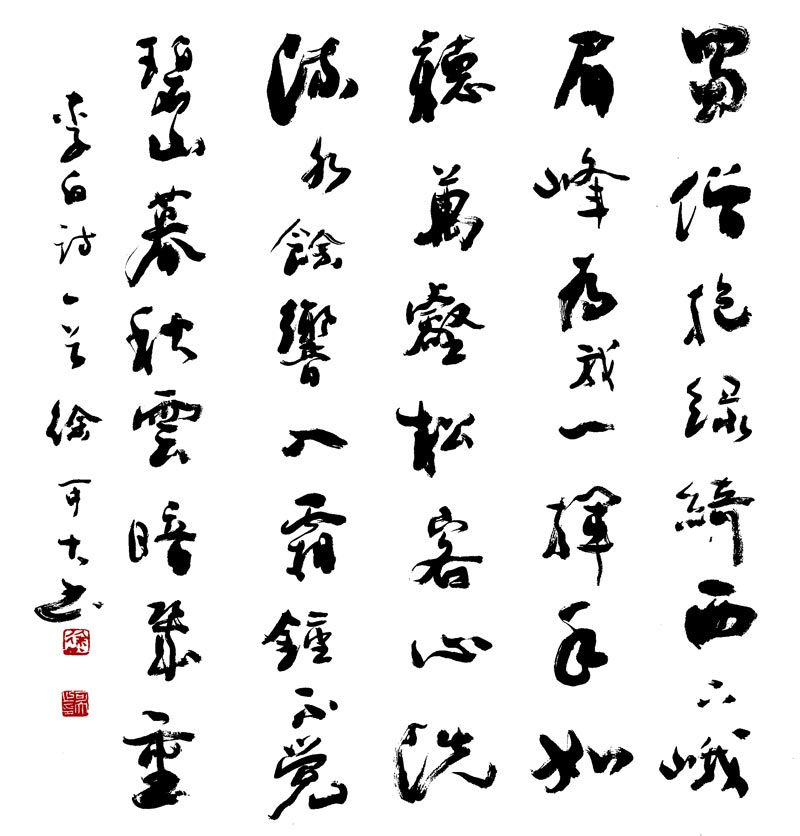 蜀僧抱綠綺西下峨
眉峰為我一揮手如
聽萬壑松客心洗
流水餘響入霜鐘不覺
碧山暮秋雲暗幾重
李白詩一首徐書